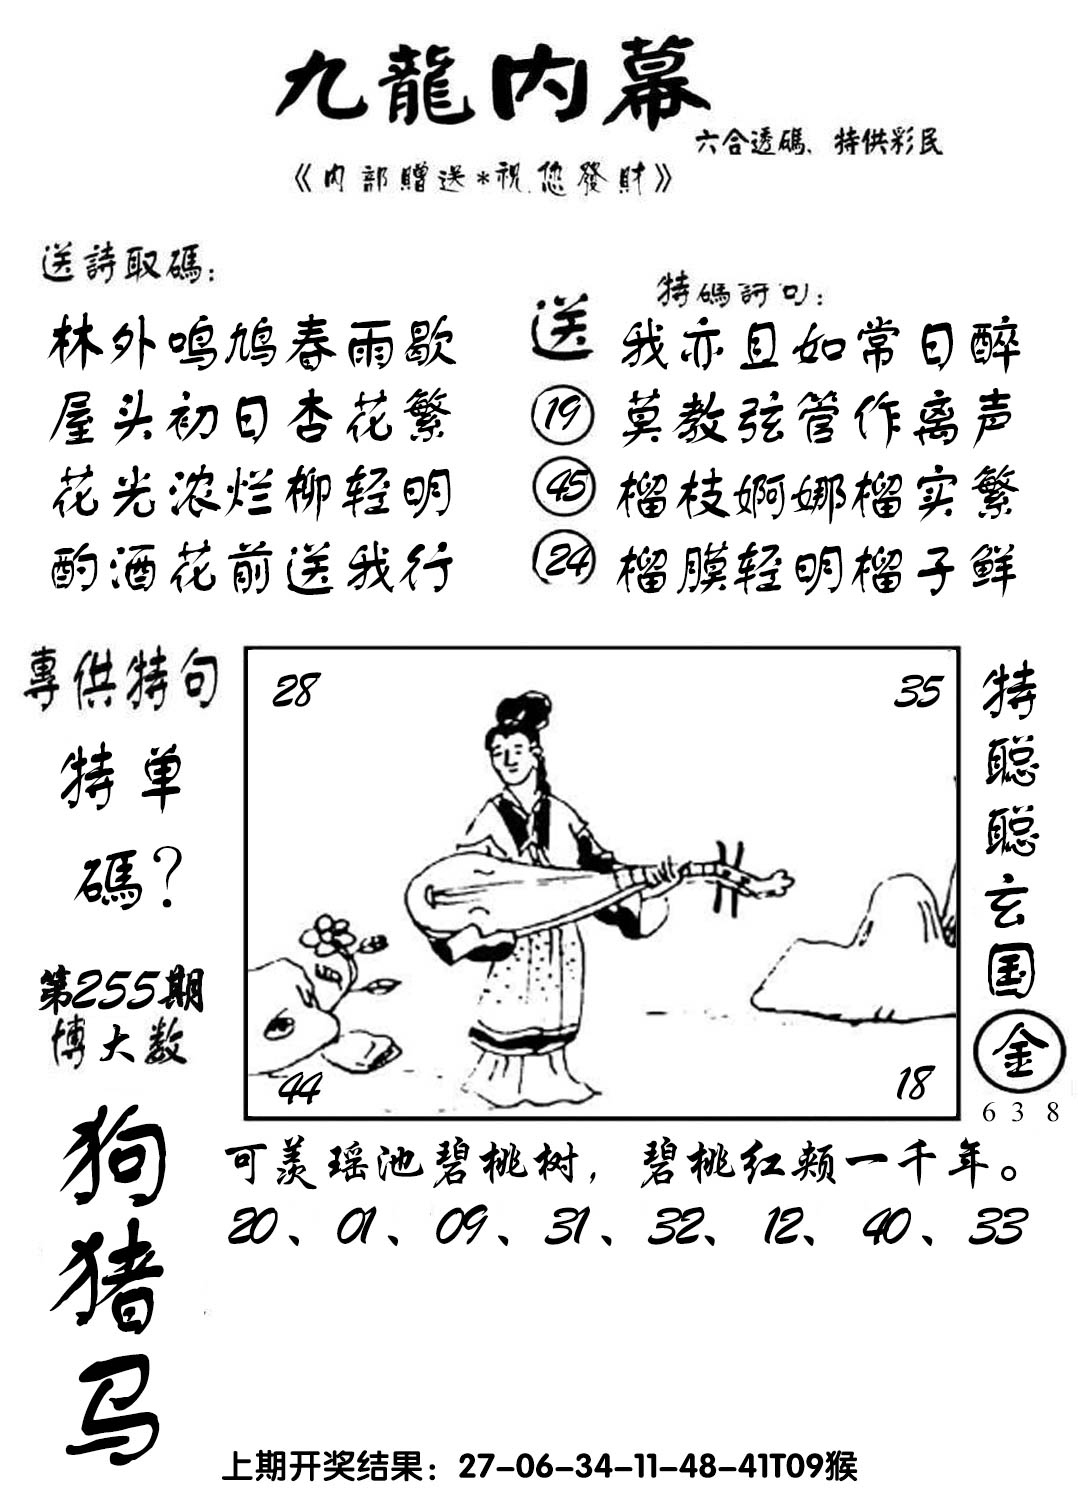 九龍内幕
六合透碼、特供彩民
《内部贈送*祝您發財》
送詩取碼：
林外鸣鸠春雨歇
屋头初日杏花繁
花光浓烂柳轻明
酌酒花前送我行
送
19
45
24
特碼詩句：
我亦且如常日醉
莫教弦管作离声
榴枝婀娜榴实繁
榴膜轻明榴子鲜
專供特句
特单
碼？
第255期
博大数
狗
猪
马
28
35
44
18
特聪聪玄国
金
638
可羡瑶池碧桃树，碧桃红颊一千年。
20、01、09、31、32、12、40、33
上期开奖结果：27-06-34-11-48-41T09猴